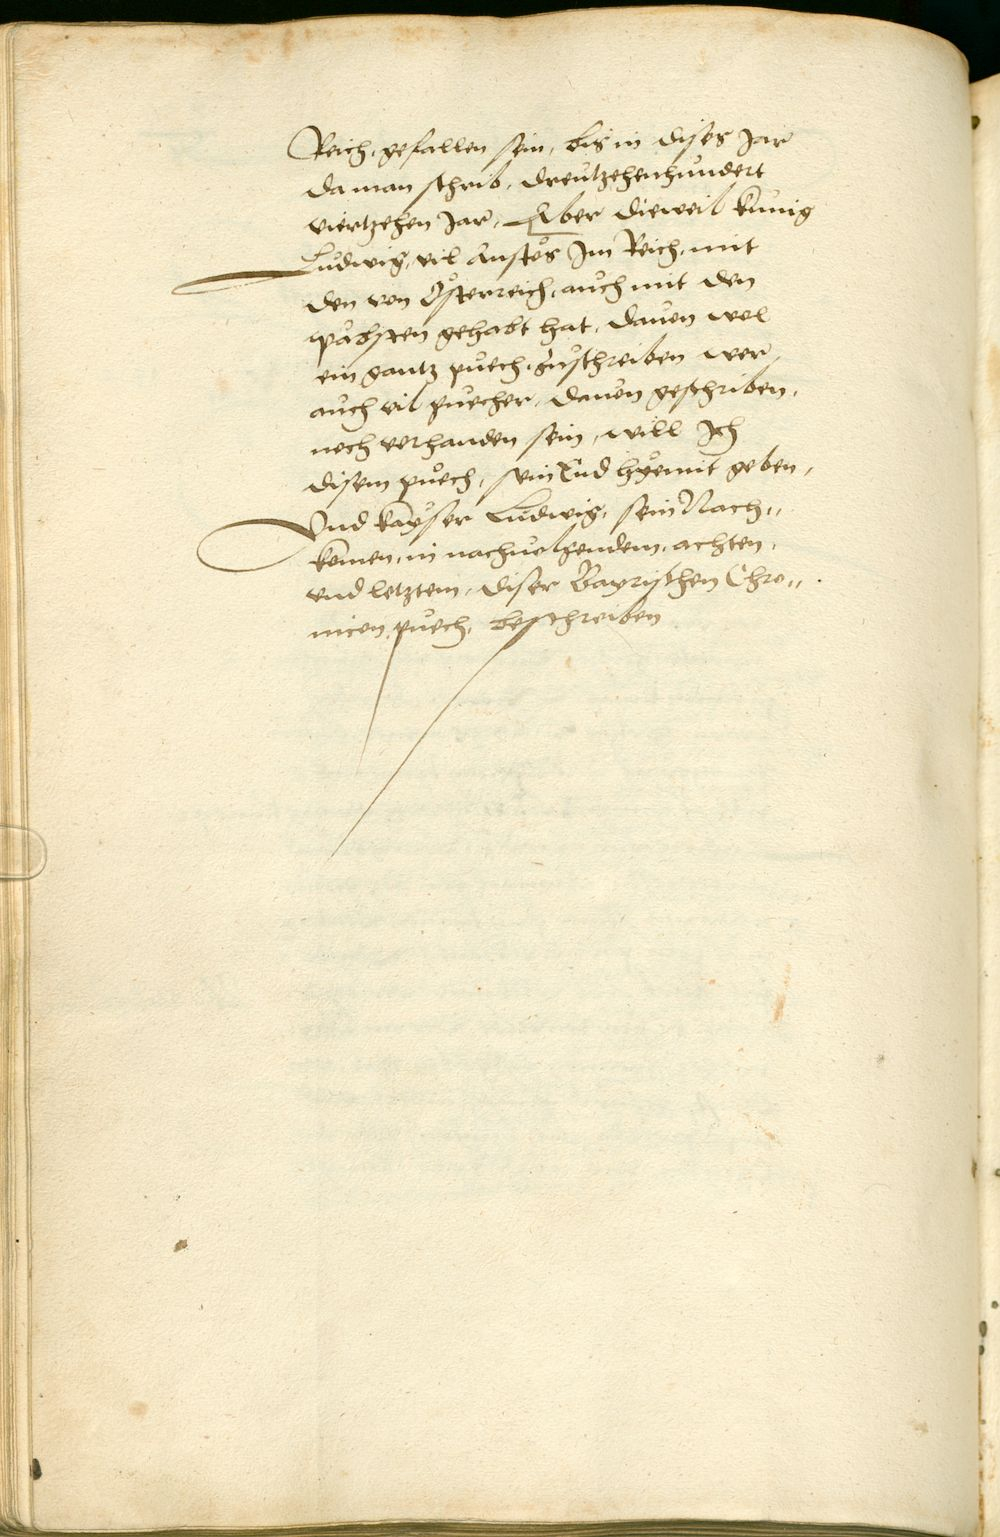 Reich, gefallen sein, bis in dises Jar
da man schrib, dreutzehenhundert
viertzehen Jar, Aber dieweil kunig
Ludwig, vil Anstos Im Reich, mit
den von Österreich, auch mit den
Päbsten gehabt hat, davon wol
ein gantz puech, zuschreiben wer,
auch vil puecher, davon geschriben,
noch verhanden sein, will Ich
disem puech, sein End hyemit geben,
Vnd kayser Ludwig, sein Nach„
komen, in nachuolgendem, achten,
vnd letztem, diser Bayrischen Chro„
nicen, puech, beschreiben